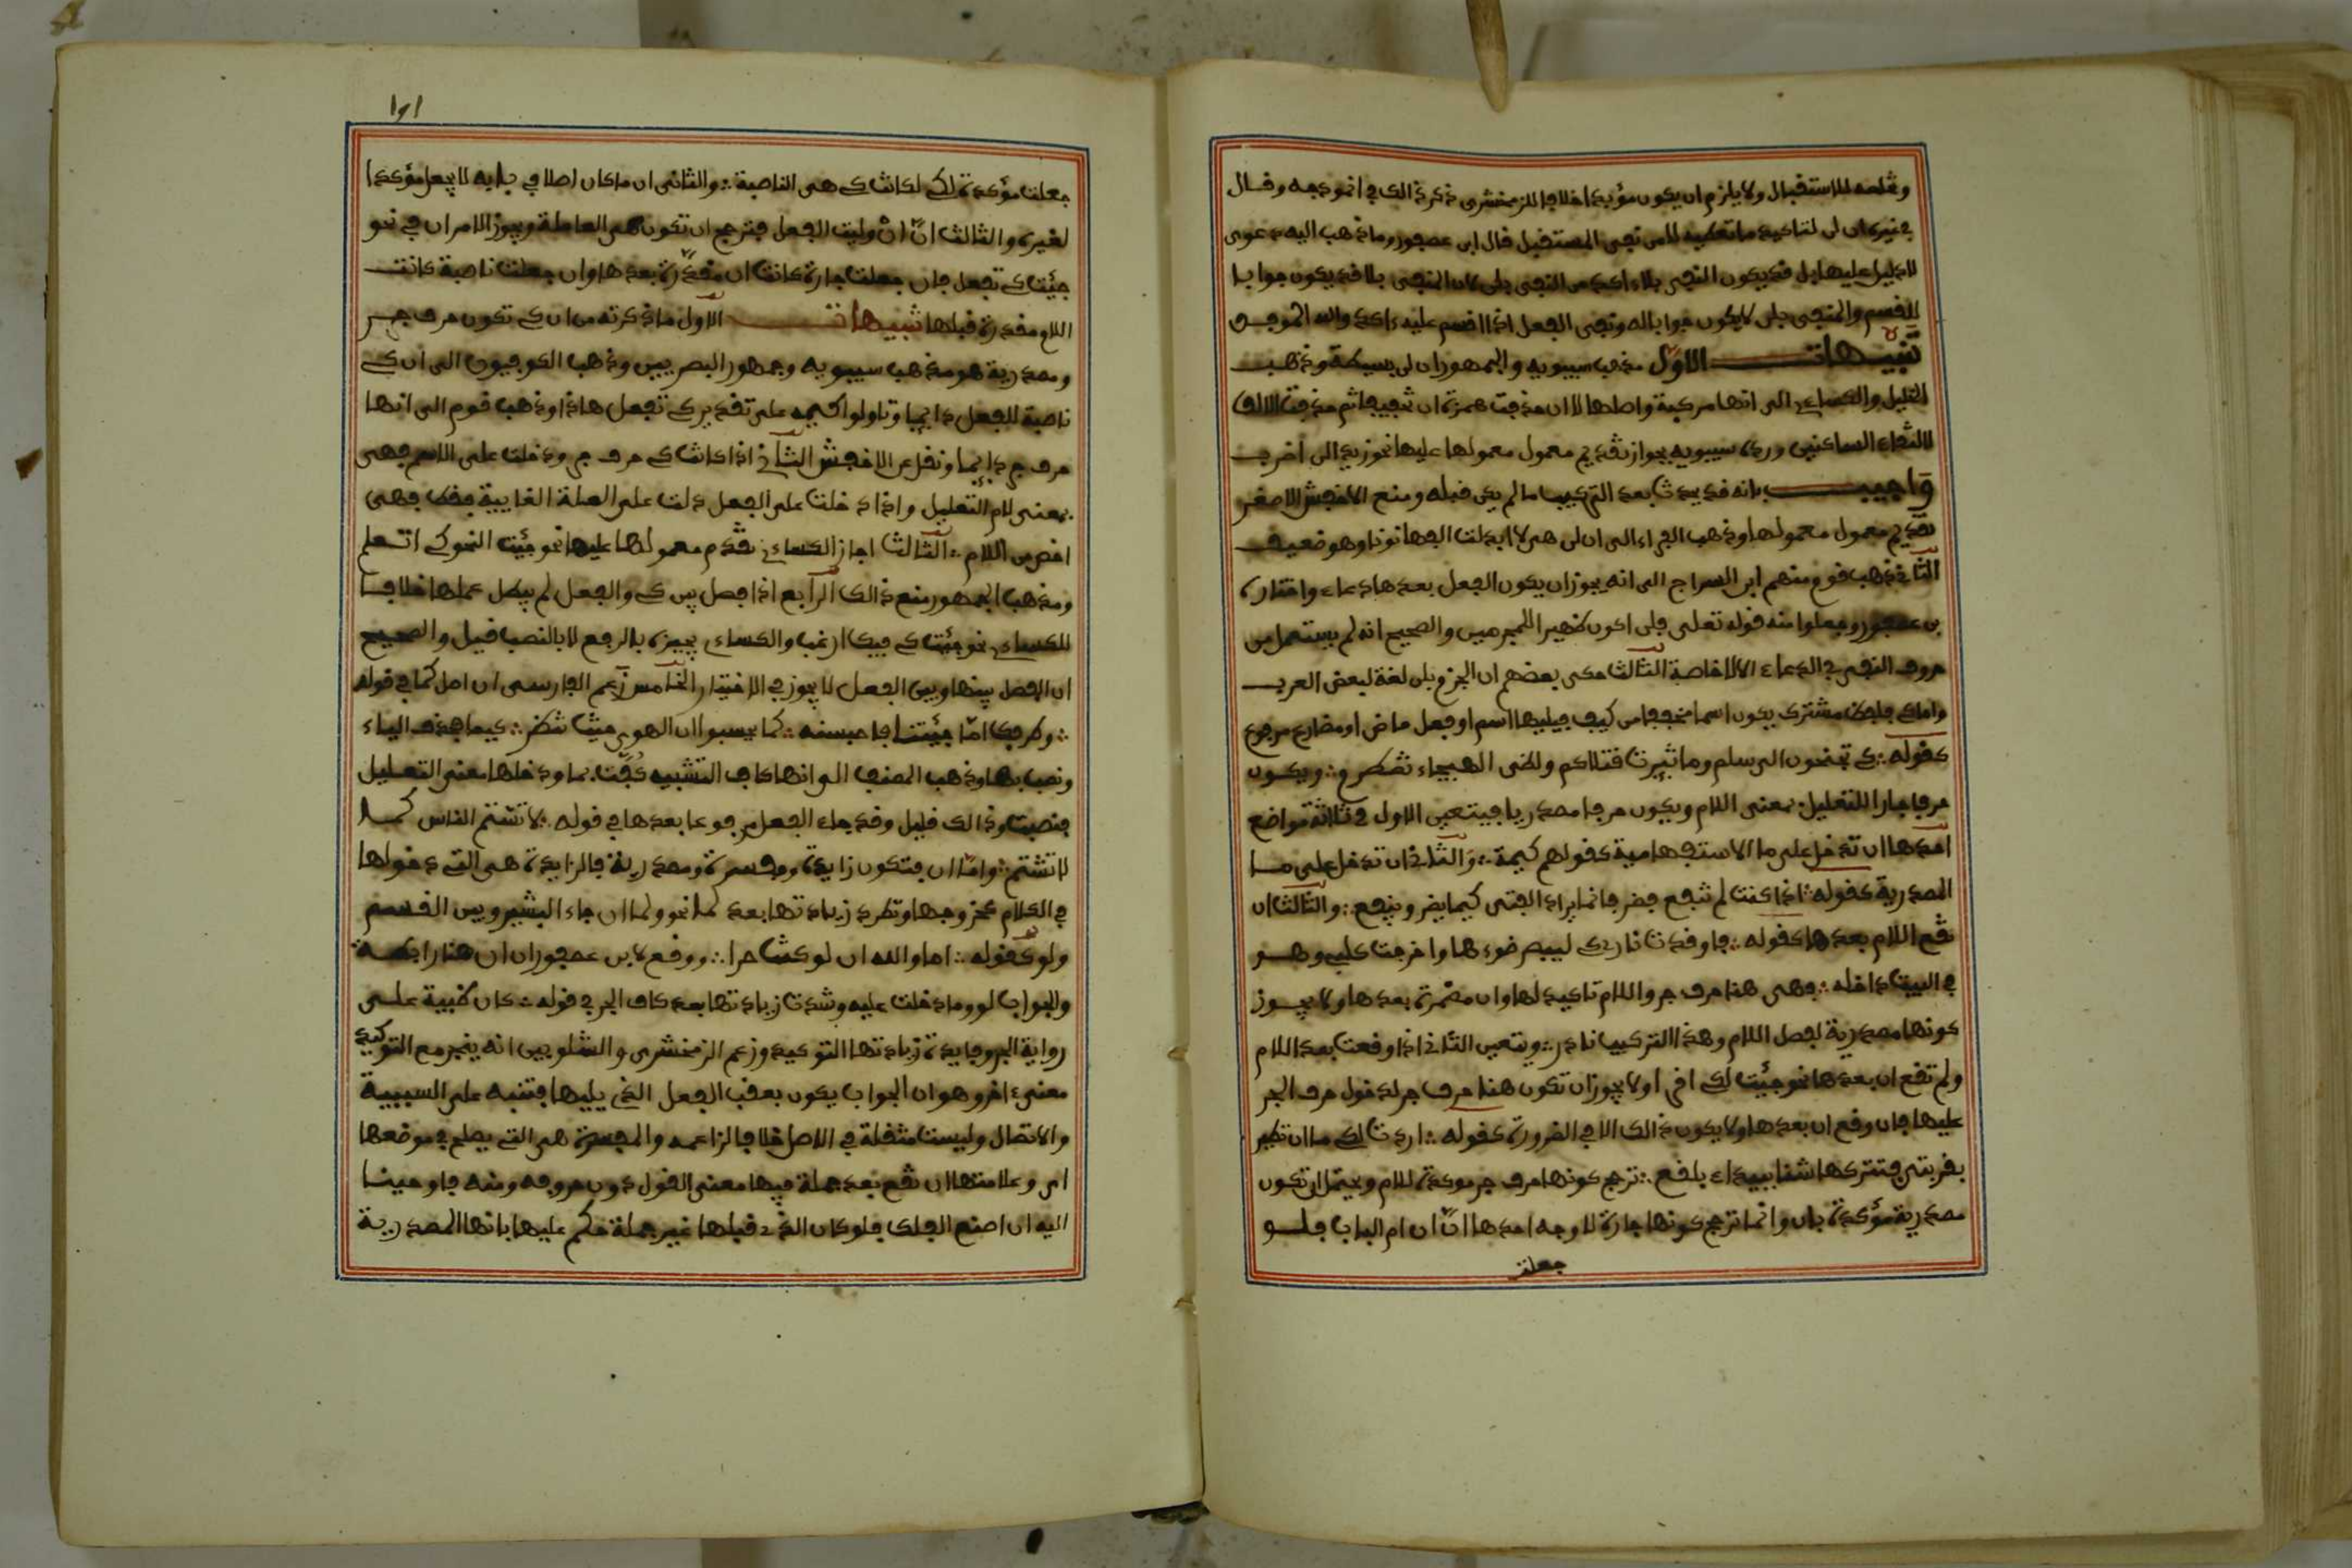 وتخلصه للاستقبال ولا يلزم ان يكون مؤبدا خلافا للزمخشرى ذكر ذالك في انموذجه وقال
في غيره ان لن لتاكيد ما تعطيه لا من نفي المستقبل قال ابن عصفور وما ذهب اليه دعوى
لا دليل عليها بل قد يكون النفي بلا ءاكد من النفي بلن لان المنفي بلا قد يكون جوابا
للقسم والمنفي بلن لا يكون جوابا له ونفي الفعل اذا اقسم عليه ءاكد والله الموفق
تنبيهات الاول مذهب سيبويه والجمهور ان لن بسيطة وذهب
الخليل والكساءي الى انها مركبة واصلها لا ان حذفت همزة ان تخفيفا ثم حذفت الالف
لالتقاء الساكنين ورده سيبويه بجواز تقديم معمول معمولها عليها نحو زيدا لن اضرب
واجيب بانه قد يحدث بعد التركيب ما لم يكن قبله ومنع الاخفش الاصغر
تقديم معمول معمولها وذهب الفراء الى ان لن هي لا ابدلت الفها نونا وهو ضعيف
الثاني ذهب قوم ومنهم ابن السراج الى انه يجوز ان يكون الفعل بعدها دعاء واختاره
بن عصفور وجعلوا منه قوله تعلى فلن اكون ظهيرا للمجرمين والصحيح انه لم يستعمل من
حروف النفي في الدعاء الا لا خاصة الثالث حكى بعضهم ان الجزم بلن لغة لبعض العرب
واما كي فلفظ مشترك يكون اسما مخففا من كيف فيليها اسم او فعل ماض او مضارع مرفوع
كقوله كي تجنحون الى سلم وما ثيرت قتلاكم ولظى الهيجاء تضطرم ويكون
حرفا جارا للتعليل بمعنى اللام ويكون حرفا مصدريا فيتعين الاول في ثلاثة مواضع
احدها ان تدخل على ما الاستفهامية كقولهم كيمة والثاني ان تدخل على ما
المصدرية كقوله اذا كنت لم تنفع فضر فانما يراد الفتى كيما يضر وينفع والثالث ان
تقع اللام بعدها كقوله فاوقدت ناري كي ليبصر ضوءها واخرجت كلبي وهو
في البيت داخله فهي هنا حرف جر واللام تاكيد لها وان مضمرة بعدها ولا يجوز
كونها مصدرية لفصل اللام وهذا التركيب نادر ويتعين الثاني اذا وقعت بعد اللام
ولم تقع ان بعدها نحو جئت لكي اقرا ولا يجوز ان تكون هنا حرف جر لدخول حرف الجر
عليها فان وقع ان بعدها ولا يكون ذالك الا في الضرورة كقوله اردت لكي ما ان تطير
بقربتي فتتركها شنا ببيداء بلقع ترجح كونها حرف جر موكدة للام ويحتمل ان تكون
مصدرية مؤكدة بان وانما ترجح كونها جارة لاوجه احدها ان ان ام الباب فلو
جعلت
١٥١
جعلت مؤكدة لكي لكانت كي هي الناصبة والثاني ان ما كان اصلا في بابه لا يجعل مؤكدا
لغيره والثالث ان ان وليت الفعل فترجح ان تكون هي العاملة ويجوز الامران في نحو
جئت كي تفعل فان جعلت جارة كانت ان مقدرة بعدها وان جعلت ناصبة كانت
اللام مقدرة قبلها تنبيهات الاول ما ذكرته من ان كي تكون حرف جر
ومصدرية هو مذهب سيبويه وجمهور البصريين وذهب الكوفيون الى ان كي
ناصبة للفعل دايما وتاولوا كيمه على تقدير كي تفعل ماذا وذهب قوم الى انها
حرف جر دايما ونقل عن الاخفش الثاني اذا كانت كي حرف جر ودخلت على الاسم فهي
بمعنى لام التعليل واذا دخلت على الفعل دلت على العلة الغايية فقط فهي
اخص من اللام الثالث اجاز الكساءي تقدم معمولها عليها نحو جئت النحو كي اتعلم
ومذهب الجمهور منع ذالك الرابع اذا فصل بين كي والفعل لم يبطل عملها خلافا
للكساءي نحو جئت كي فيك ارغب والكساءي يجيزه بالرفع لا بالنصب قيل والصحيح
ان الفصل بينها وبين الفعل لا يجوز في الاختيار الخامس زعم الفارسى ان اصل كما في قوله
وطرفك اما جئتنا فاحبسنه كما يحسبوا ان الهوى حيث تنظر كيما فحذف الياء
ونصب بها وذهب المصنف الى انها كاف التشبيه كفت بما ودخلها معنى التعليل
فنصبت وذالك قليل وقد جاء الفعل مرفوعا بعدها في قوله لا تشتم الناس كما
لا تشتم واما ان فتكون زايدة ومفسرة ومصدرية فالزايدة هي التي دخولها
في الكلام كخروجها وتطرد زيادتها بعد لما نحو ولما ان جاء البشير وبين القسم
ولو كقوله اما والله ان لو كنت حرا ووقع لابن عصفور ان ان هنا رابطة
والجواب لو وما دخلت عليه وشذت زيادتها بعد كاف الجر في قوله كان ظبية على
رواية الجر وفايدة زيادتها التوكيد وزعم الزمخشرى والشلوبين انه ينجر مع التوكيد
معنىء اخر وهو ان الجواب يكون بعقب الفعل الذي يليها فتنبه على السببية
والاتصال وليست مثقلة في الاصل خلافا لزاعمه والمفسرة هي التي يصلح في موضعها
اي وعلامتها ان تقع بعد جملة فيها معنى القول دون حروفه ومنه فاوحينا
اليه ان اصنع الفلك فلو كان الذي قبلها غير جملة حكم عليها بانها المصدرية